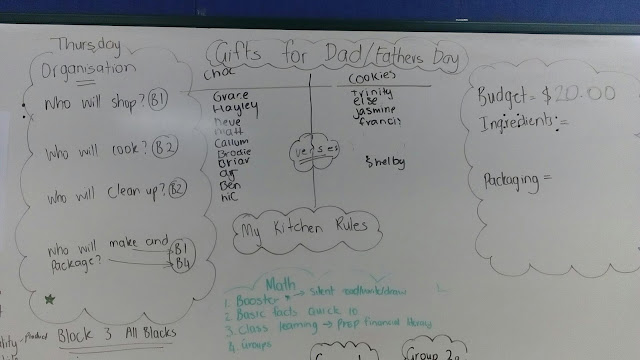 Thursday
Organisation
Who will shop? B1
Who will cook? B2
Who will clean up? B2
Who will make and B1
package? B4
Block 3 All Blacks
Gifts for Dad/Fathers Day
Choc
Grace
Hayley
neve
matt
Callum
Brodie
Briar
Ben
nic
verses
COOKIES
Trinity
else
jasmine
francis
Shelby
My Kitchen Rules
Math
1. Booster → silent
2. Basic facts quick 10
3. Class learning → Prep financial literacy
4. Groups
Group 2
Budget = $20.00
Ingredients =
Packaging =